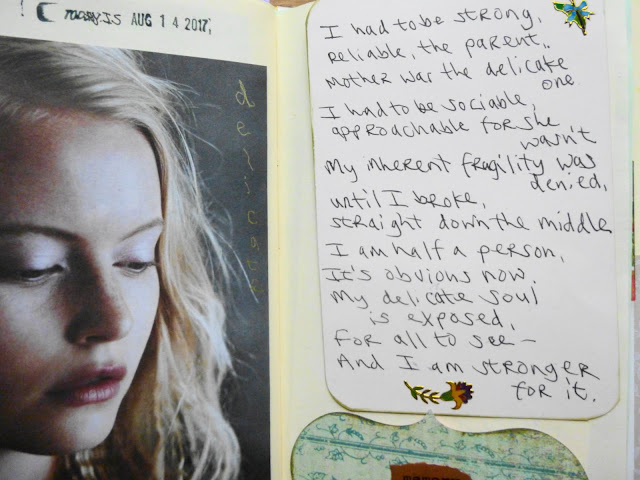 ! TODAY IS AUG 14 2017,
delicate
I had to be strong,
reliable, the parent..
Mother was the delicate
one
I had to be sociable,
approachable for she
wasn't
My inherent fragility was
denied,
until I broke,
straight down the middle
I am half a person,
It's obvious now.
My delicate soul
is exposed,
For all to see –
And I am stronger
for it.